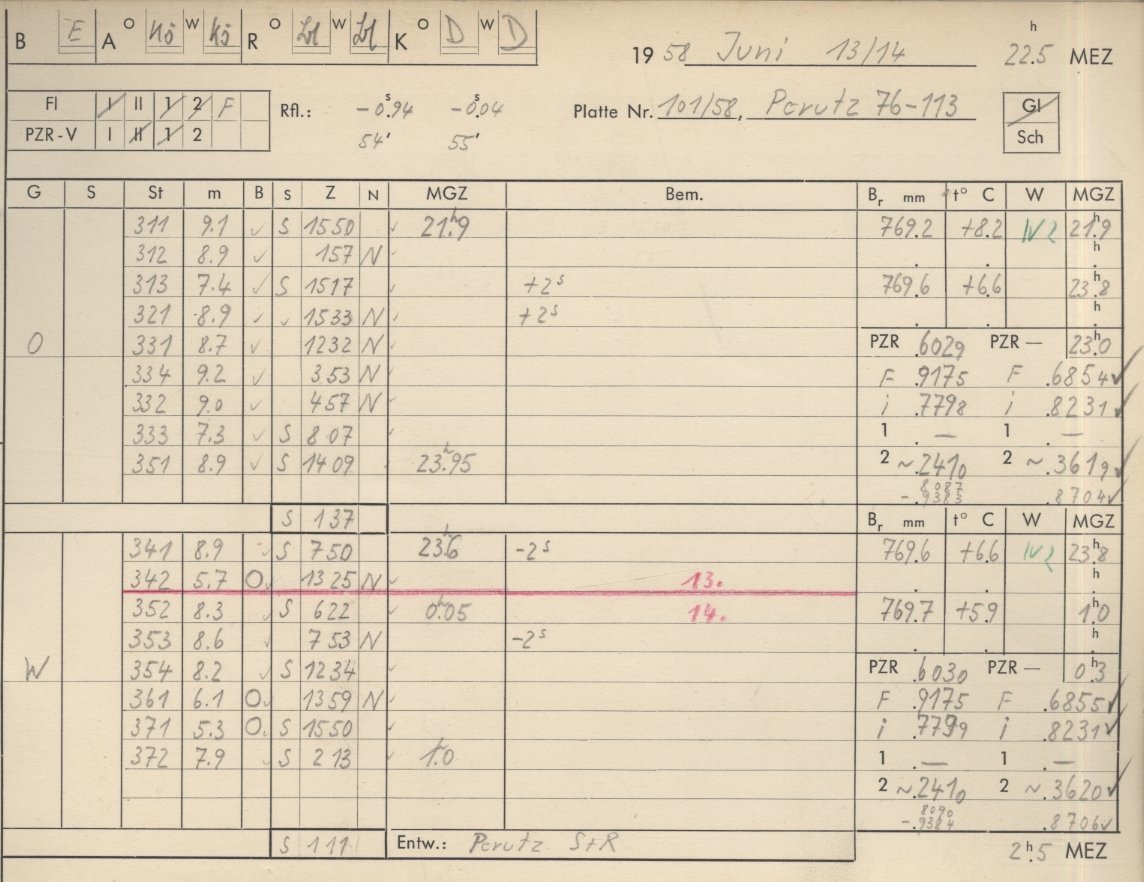 B E A O Kö W Kö R O W K O D W D
h
19 58 Juni 13/14 22.5 MEZ
FI I II 1 2 F Rfl.: -0.ˢ94 -0.ˢ04 Platte Nr. 101/58, Perutz 76-113 Gl
PZR-V I II 1 2 54' 55' Sch
G S St m B S Z N MGZ Bem. Br mm t° C W MGZ
311 9.1 ✓ S 1550 ✓ 21ʰ.9 769.2 +8.2 IV2 21.9
312 8.9 ✓ 157 N . . ʰ.
313 7.4 ✓ S 1517 ✓ +2ˢ 769.6 +6.6 23ʰ.8
321 8.9 ✓ ✓ 1533 N +2ˢ . . ʰ.
O 331 8.7 ✓ 1232 N PZR .6029 PZR — 23ʰ.0
334 9.2 ✓ 353 N F .9175 F .6854✓
332 9.0 ✓ 457 N i .7798 i .8231✓
333 7.3 ✓ S 807 ✓ 1 . — 1 . —
351 8.9 ✓ S 1409 ✓ 23ʰ.95 2 ~.2410 2 ~.3619✓
8087
-.9383 .8704✓
S 137 Br mm t° C W MGZ
341 8.9 ✓ S 750 23ʰ.6 -2ˢ 769.6 +6.6 IV2 23ʰ.8
342 5.7 O✓ 1325 N ✓ 13. . . ʰ.
352 8.3 ✓ S 622 ✓ 0ʰ.05 14. 769.7 +5.9 1ʰ.0
353 8.6 ✓ 753 N -2ˢ . . ʰ.
W 354 8.2 ✓ S 1234 ✓ PZR .6030 PZR — 0ʰ.3
361 6.1 O✓ 1359 N ✓ F .9175 F .6855✓
371 5.3 O✓ S 1550 ✓ i .7799 i .8231✓
372 7.9 ✓ S 213 ✓ 1ʰ.0 1 . — 1 . —
2 ~.2410 2 ~.3620✓
8090
-.9384 .8706✓
S 111 Entw.: Perutz S+R
2ʰ.5 MEZ